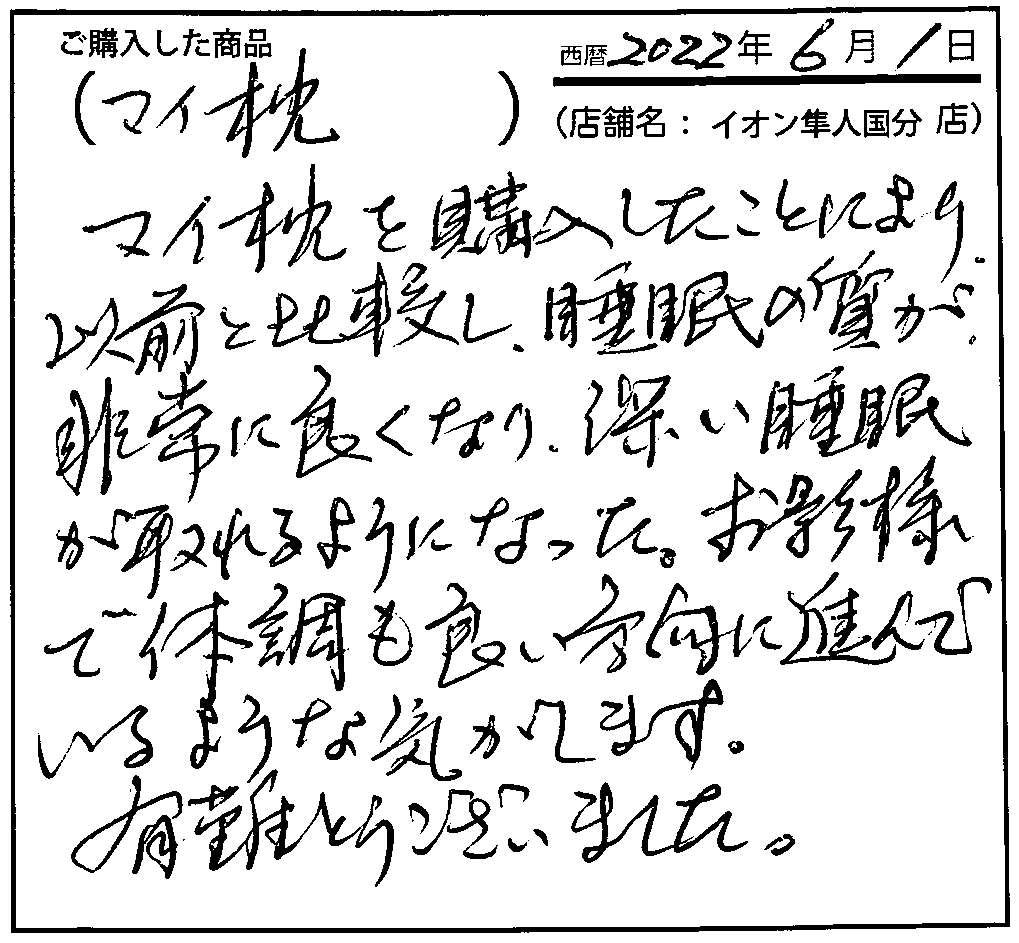 ご購入した商品
西暦2022年6月1日
(マイ枕)
(店舗名：イオン隼人国分店)
マイ枕を購入したことにより、
以前と比較し、睡眠の質が、
非常に良くなり、深い睡眠
が取れるようになった。お影様
で体調も良い方向に進んで
いるような気がします。
有難とうございました。